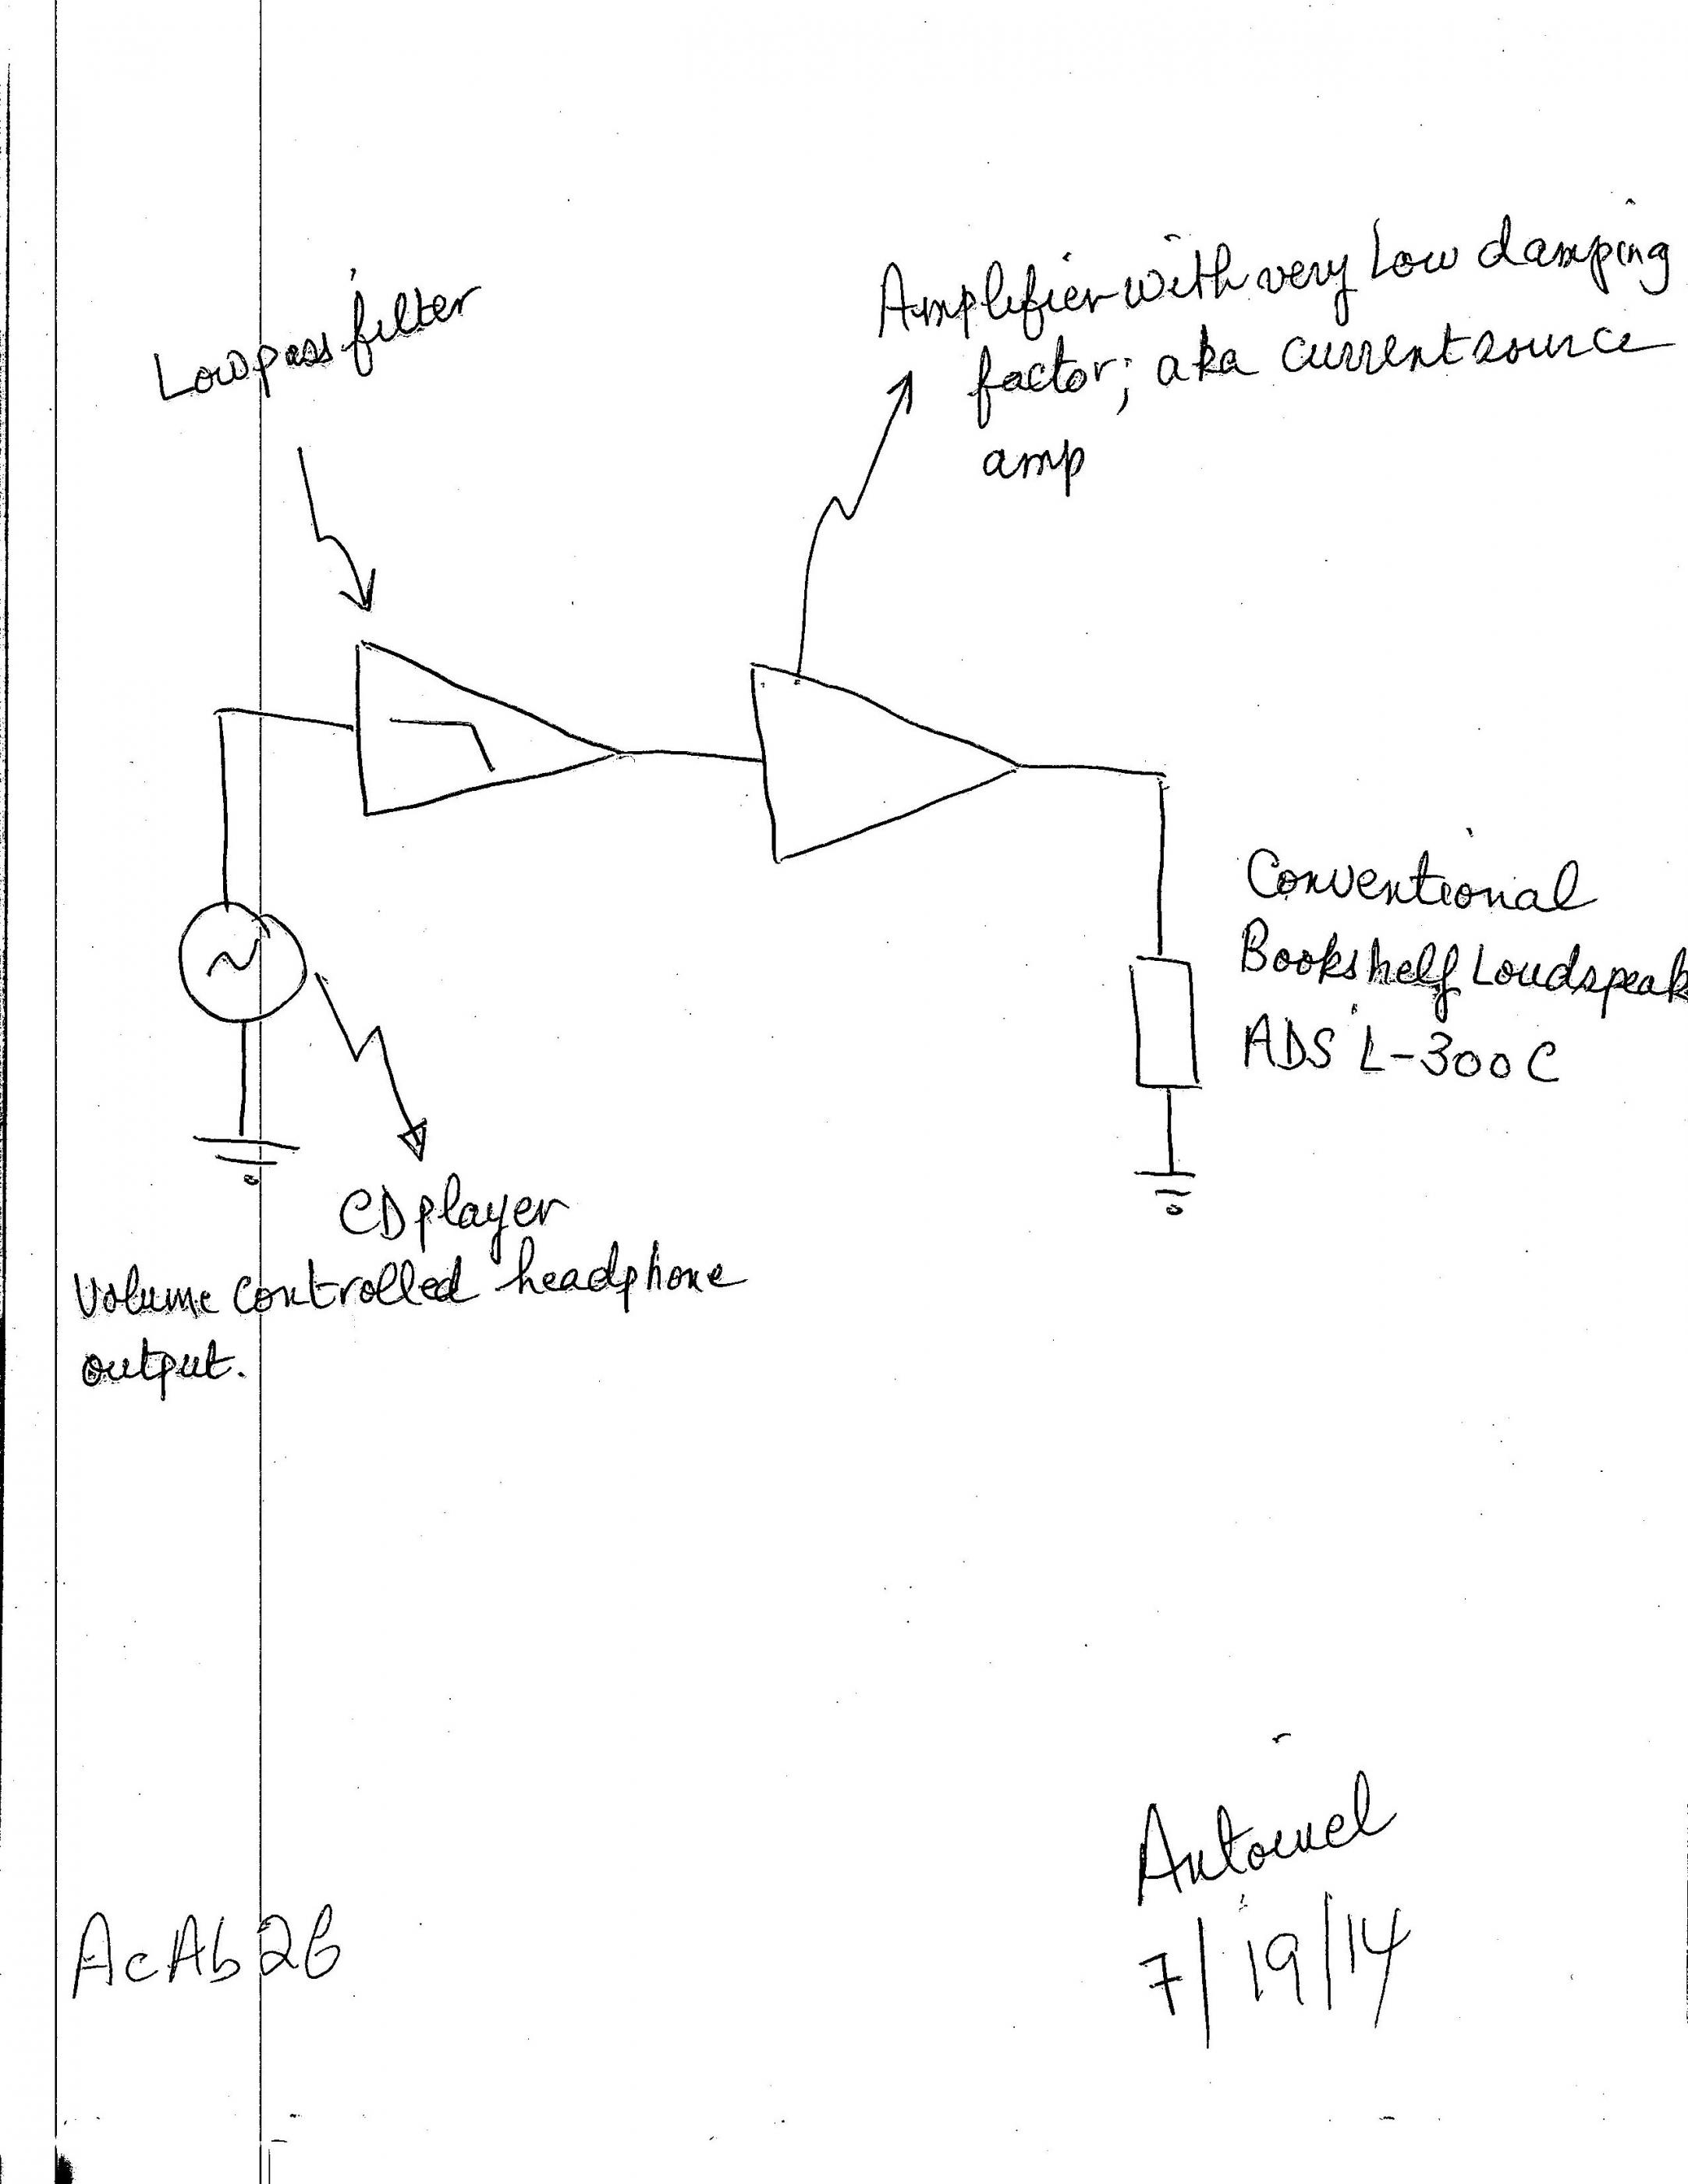 Lowpass filter
Amplifier with very low damping
factor; aka current source
amp
Conventional
Bookshelf Loudspeak
ADS L-300C
CD player
Volume controlled headphone
output.
7/19/14